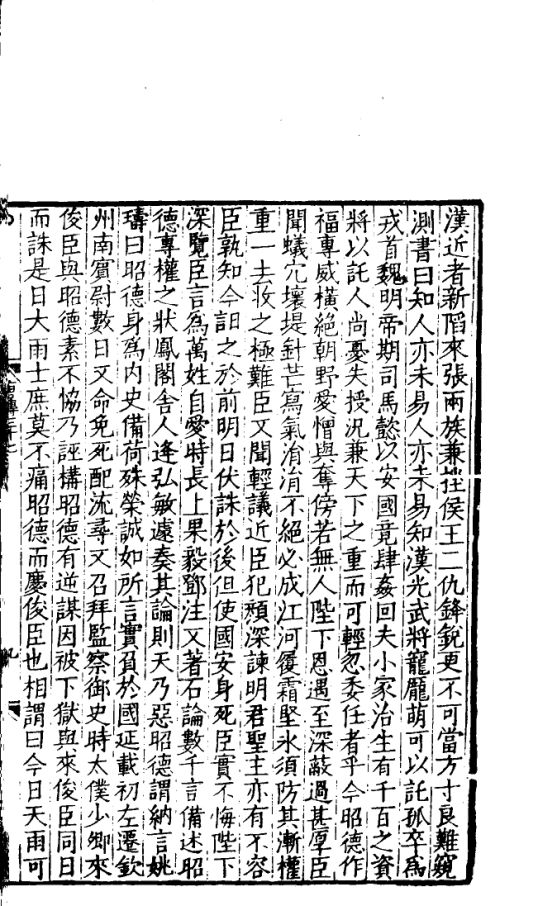 漢近者新陷來張兩族兼挫侯王二仇鋒銳更不可當方寸良難窺
測書曰知人亦未易人亦未易知漢光武將寵龐萌可以託孤卒為
戎首魏明帝期司馬懿以安國竟肆姦回夫小家治生有千百之資
將以託人尚憂失授況兼天下之重而可輕忽委任者乎今昭德作
福專威橫絕朝野愛憎與奪傍若無人陛下恩遇至深蔽過甚厚臣
聞蟻穴壞堤針芒寫氣涓涓不絕必成江河履霜堅氷須防其漸權
重一去收之極難臣又聞輕議近臣犯顏深諫明君聖主亦有不容
臣孰知今日言之於前明日伏誅於後但使國安身死臣實不悔陛下
深覽臣言為萬姓自愛時長上果毅鄧注又著石論數千言備述昭
德專權之狀鳳閣舍人逄弘敏遽奏其論則天乃惡昭德謂納言姚
璹曰昭德身為內史備荷殊榮誠如所言實負於國延載初左遷欽
州南賓尉數日又命免死配流尋又召拜監察御史時太僕少卿來
俊臣與昭德素不協乃誣構昭德有逆謀因被下獄與來俊臣同日
而誅是日大雨士庶莫不痛昭德而慶俊臣也相謂曰今日天雨可